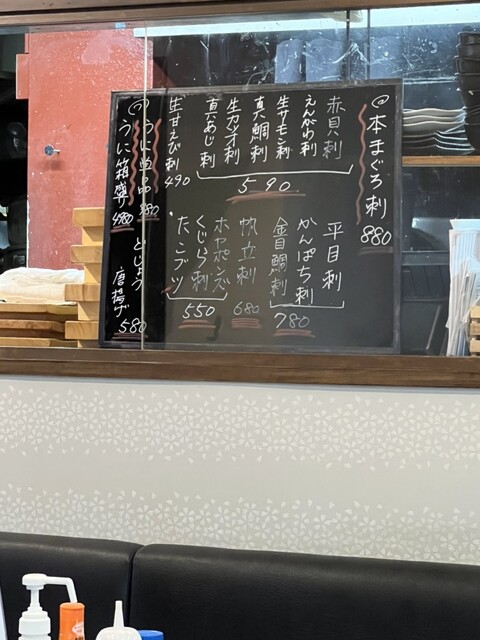 @本まぐろ刺
880
赤貝刺
えんがわ刺
生サーモン刺
真鯛刺
生カツオ刺
真あじ刺
590
生甘えび刺
490
平目刺
かんぱち刺
金目鯛刺
780
帆立刺
680
ホヤポン酢
くじら刺
たこブツ
550
うに単品
980
どじょう
唐揚げ
580
うに箱盛り